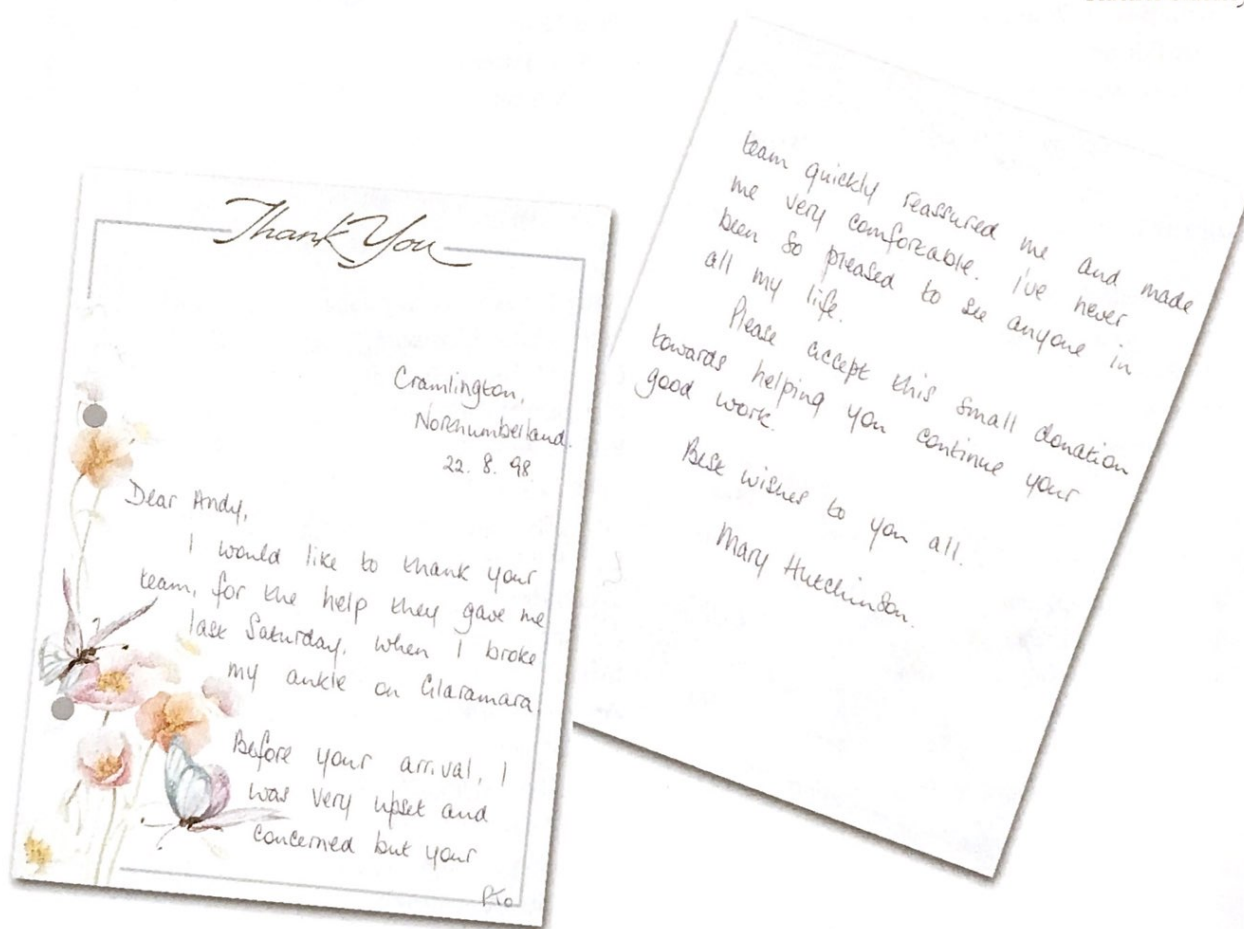 Thank You
Cramlington,
Northumberland.
22. 8. 98.
Dear Andy,
I would like to thank your
team, for the help they gave me
last Saturday, when I broke
my ankle on Glaramara.
Before your arrival, I
was very upset and
concerned but your
PTO
team quickly reassured me and made
me very comfortable. I've never
been so pleased to see anyone in
all my life.
Please accept this small donation
towards helping you continue your
good work.
Best wishes to you all.
Mary Hutchinson.